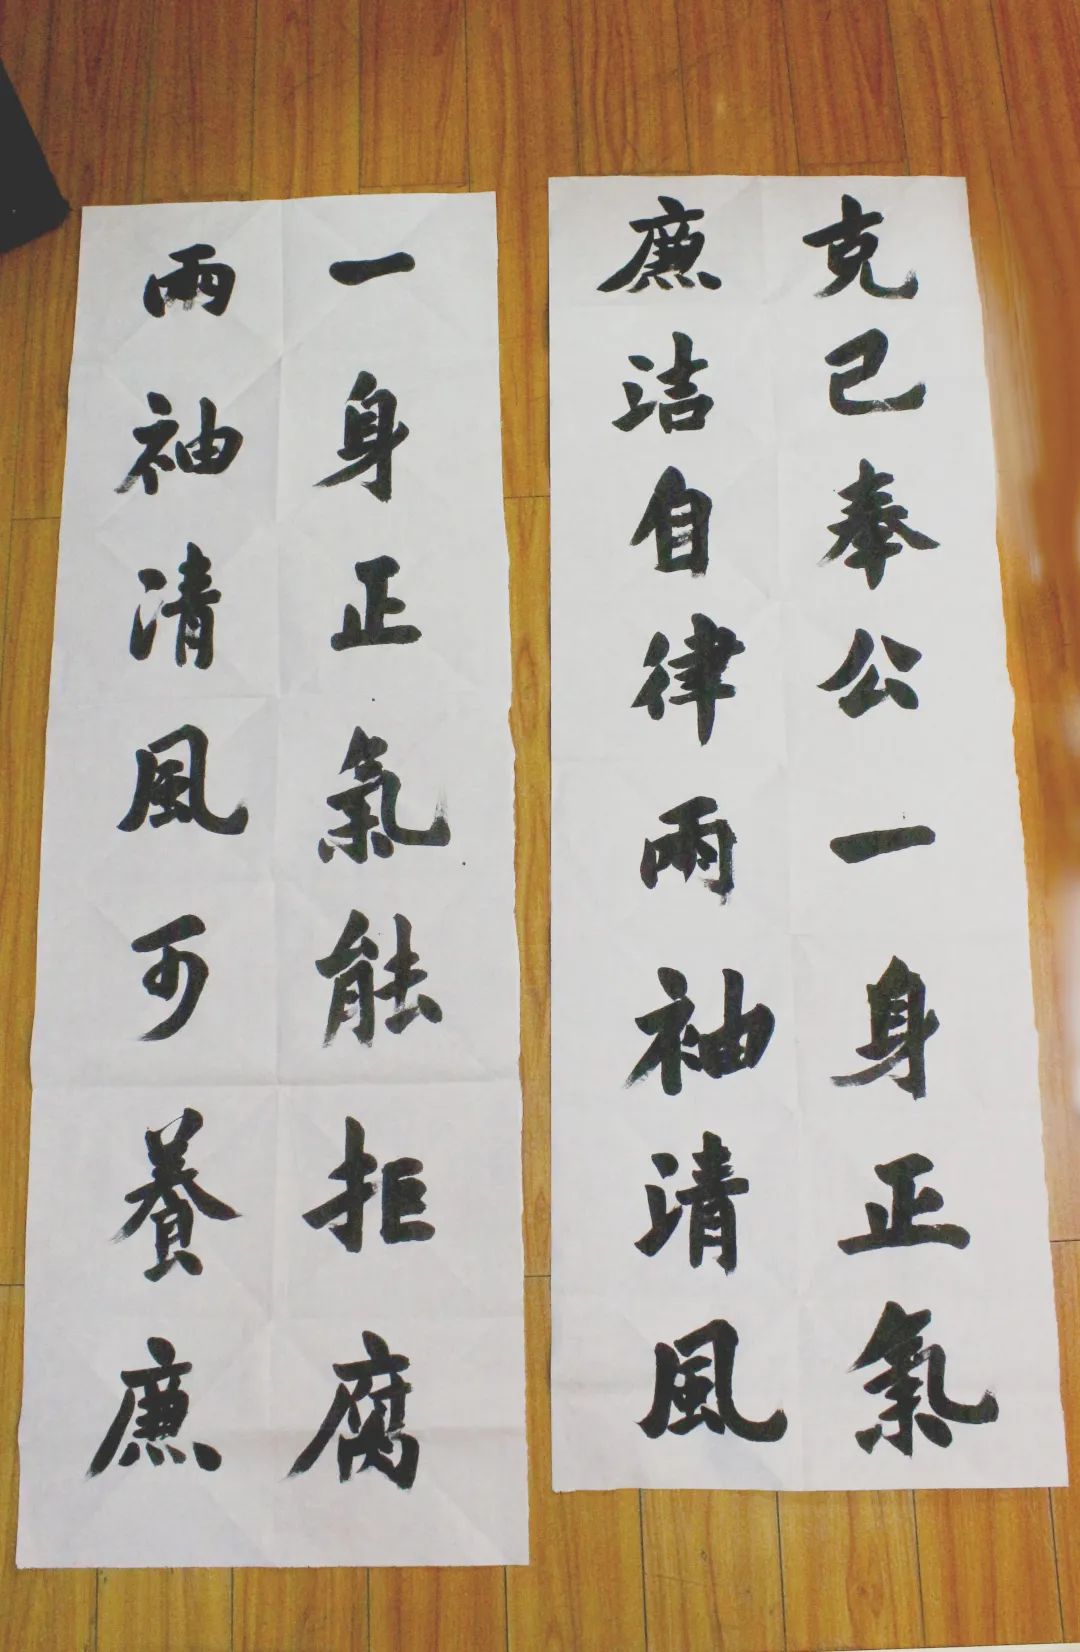 克己奉公一身正氣
廉洁自律兩袖清風
一身正氣能拒腐
兩袖清風可養廉